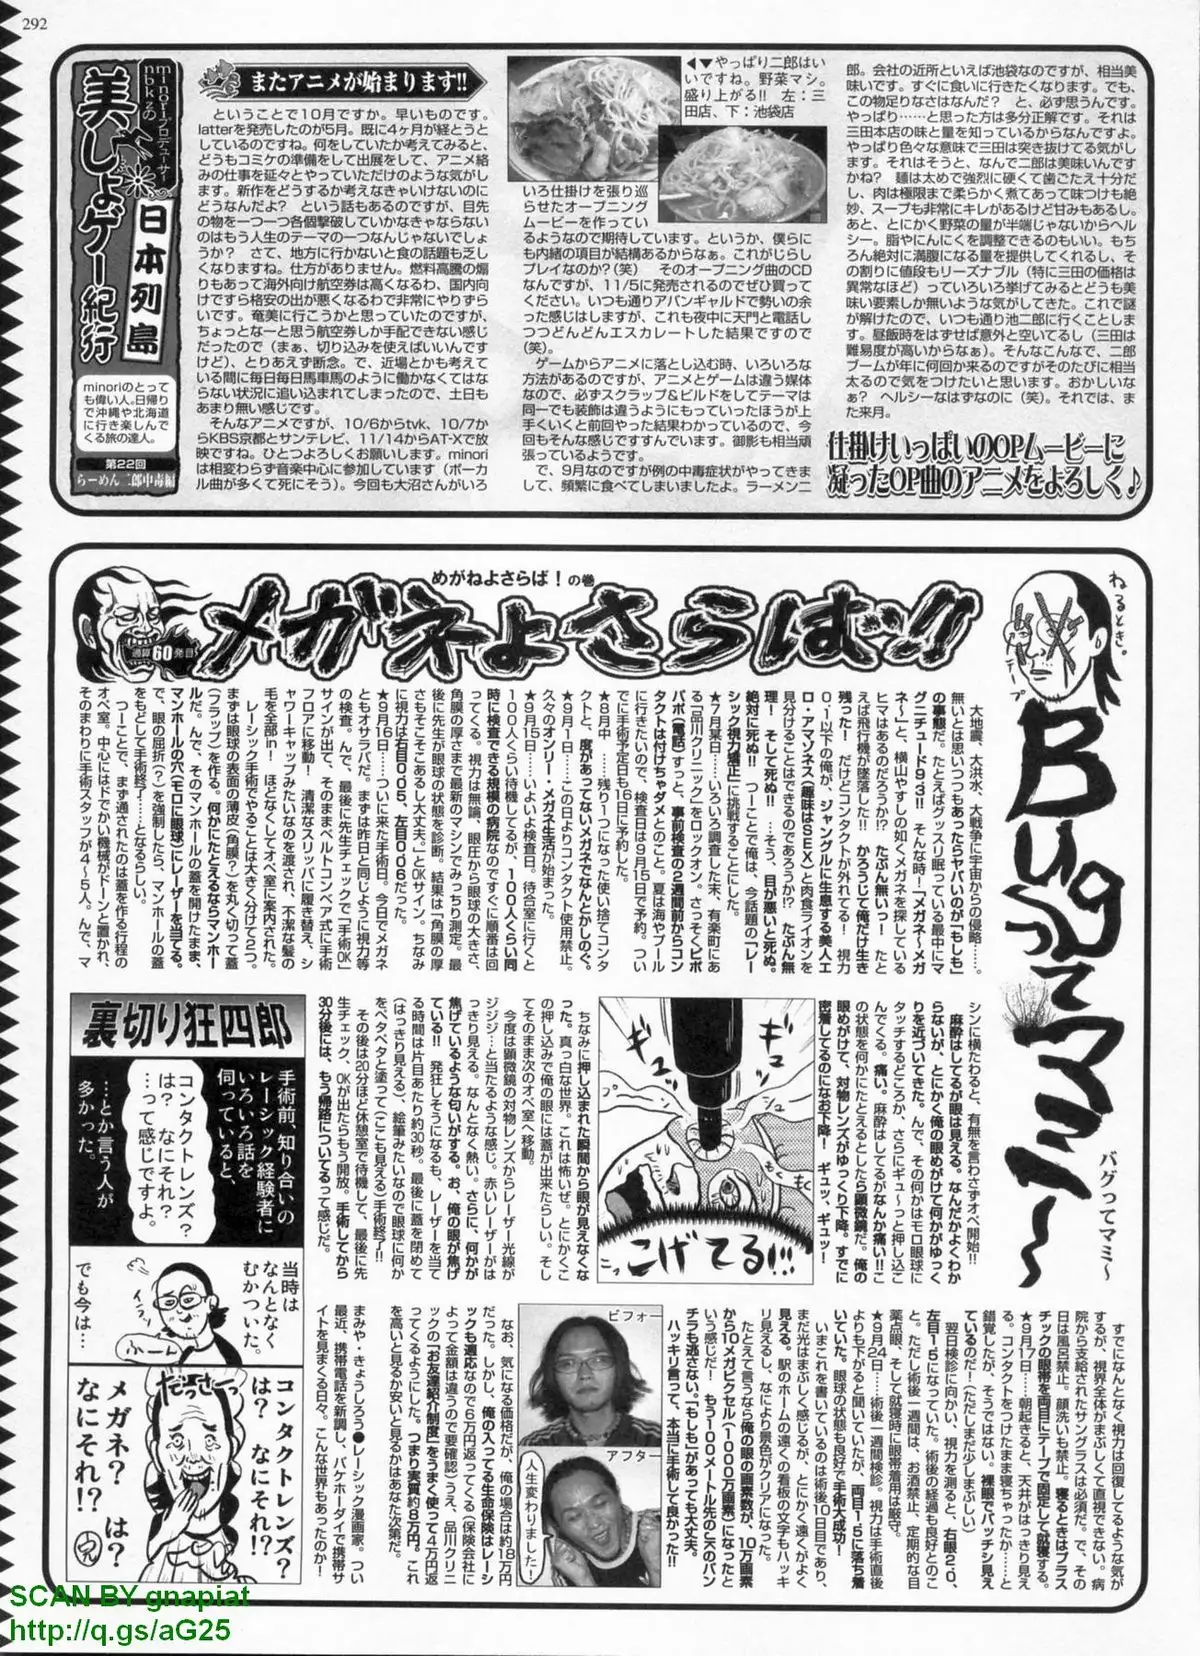 292
minoriプロデューサー
nbkzの
美しょゲー紀行
日本列島
minoriのとって
も偉い人。日帰り
で沖縄や北海道
に行き楽しんで
くる旅の達人。
第22回
らーめん二郎中毒編
またアニメが始まります!!
ということで10月ですか。早いものです。
latterを発売したのが5月。既に4ヶ月が経とうと
しているのですね。何をしていたか考えてみると、
どうもコミケの準備をして出展をして、アニメ絡
みの仕事を延々とやっていただけのような気がし
ます。新作をどうするか考えなきゃいけないのに
どうなんだよ? という話もあるのですが、目先
の物を一つ一つ各個撃破していかなきゃならない
のはもう人生のテーマの一つなんじゃないでしょ
うか? さて、地方に行かないと食の話題も乏し
くなりますね。仕方がありません。燃料高騰の煽
りもあって海外向け航空券は高くなるわ、国内向
けですら格安の出が悪くなるわで非常にやりずら
いです。奄美に行こうかと思っていたのですが、
ちょっとなーと思う航空券しか手配できない感じ
だったので（まぁ、切り込みを使えばいいんです
けど）、とりあえず断念。で、近場とかも考えて
いる間に毎日毎日馬車馬のように働かなくてはな
らない状況に追い込まれてしまったので、土日も
あまり無い感じです。
そんなアニメですが、10/6からtvk、10/7か
らKBS京都とサンテレビ、11/14からAT-Xで放
映ですね。ひとつよろしくお願いします。minori
は相変わらず音楽中心に参加しています（ボーカ
ル曲が多くて死にそう）。今回も大沼さんがいろ
◀▼やっぱり二郎はい
いですね。野菜マシ。
盛り上がる!! 左:三
田店、下:池袋店
いろ仕掛けを張り巡
らせたオープニング
ムービーを作ってい
るようなので期待しています。というか、僕らに
も内緒の項目が結構あるからなぁ。これがじらし
プレイなのか?（笑） そのオープニング曲のCD
なんですが、11/5に発売されるのでぜひ買って
ください。いつも通りアバンギャルドで勢いの余
った感じはしますが、これも夜中に天門と電話し
つつどんどんエスカレートした結果ですので
（笑）。
ゲームからアニメに落とし込む時、いろいろな
方法があるのですが、アニメとゲームは違う媒体
なので、必ずスクラップ&ビルドをしてテーマは
同一でも装飾は違うようにもっていったほうが上
手くいくと前回やった結果わかっているので、今
回もそんな感じですすんでいます。御影も相当頑
張っているようです。
で、9月なのですが例の中毒症状がやってきま
して、頻繁に食べてしまいましたよ。ラーメン二
郎。会社の近所といえば池袋なのですが、相当美
味いです。すぐに食いに行きたくなります。でも、
この物足りなさはなんだ? と、必ず思うんです。
やっぱり……と思った方は多分正解です。それは
三田本店の味と量を知っているからなんですよ。
やっぱり色々な意味で三田は突き抜けてる気がし
ます。それはそうと、なんで二郎は美味いんです
かね? 麺は太めで強烈に硬くて歯ごたえ十分だ
し、肉は極限まで柔らかく煮てあって味つけも絶
妙、スープも非常にキレがあるけど甘みもあるし。
あと、とにかく野菜の量が半端じゃないからヘル
シー。脂やにんにくを調整できるのもいい。もち
ろん絶対に満腹になる量を提供してくれるし、そ
の割りに値段もリーズナブル（特に三田の価格は
異常なほど）っていろいろ挙げてみるとどうも美
味い要素しか無いような気がしてきた。これで謎
が解けたので、いつも通り池二郎に行くことにしま
す。昼飯時をはずせば意外と空いてるし（三田は
難易度が高いからなぁ）。そんなこんなで、二郎
ブームが年に何回か来るのですがそのたびに相当
太るので気をつけたいと思います。おかしいな
ぁ? ヘルシーなはずなのに（笑）。それでは、ま
た来月。
仕掛けいっぱいのOPムービーに
凝ったOP曲のアニメをよろしく♪
めがねよさらば!の巻
メガネよさらばッ!!
通算60発目
ねるとき。
テープ
Bugってマミ〜
バグってマミ〜
大地震、大洪水、大戦争に宇宙からの侵略……。
無いとは思いつつもあったらヤバいのが「もしも」
の事態だ。たとえばグッスリ眠っている最中にマ
グニチュード9・3!! そんな時!「メガネ〜メガ
ネ〜」と、横山やすしの如くメガネを探している
ヒマはあるのだろうか!? たぶん無いっ! たと
えば飛行機が墜落した! かろうじて俺だけ生き
残った! だけどコンタクトが外れてる! 視力
0・1以下の俺が、ジャングルに生息する美人エ
ロ・アマゾネス（趣味はSEX）と肉食ライオンを
見分けることはできるのであろうか!? たぶん無
理! そして死ぬ!! …そう、目が悪いと死ぬ。
絶対に死ぬ!! つーことで俺は、今話題の「レー
シック視力矯正」に挑戦することにした。
★7月某日…いろいろ調査した末、有楽町にあ
る「品川クリニック」をロックオン。さっそくピポ
パポ（電話）すっと、事前検査の2週間前からコン
タクトは付けちゃダメとのこと。夏は海やプール
に行きたいので、検査日は9月15日で予約。つい
でに手術予定日も16日に予約した。
★8月中 …残り1つになった使い捨てコンタ
クトと、度があってないメガネでなんとかしのぐ。
★9月1日…この日よりコンタクト使用禁止。
久々のオンリー・メガネ生活が始まった。
★9月15日…いよいよ検査日。待合室に行くと
100人くらい待機してるが、100人くらい同
時に検査できる規模の病院なのですぐに順番は回
ってくる。視力は無論、眼圧から眼球の大きさ、
角膜の厚さまで最新のマシンでみっちり測定。最
後に先生が眼球の状態を診断。結果は「角膜の厚
さもそこそこあるし大丈夫。」とOKサイン。ちなみ
に視力は右目0・05、左目0・06だった。
★9月16日…ついに来た手術日。今日でメガネ
ともオサラバだ。まずは昨日と同じように視力等
の検査。んで、最後に先生チェックで「手術OK」
サインが出て、そのままベルトコンベア式に手術
フロアに移動! 清潔なスリッパに履き替え、シ
ャワーキャップみたいなのを渡され、不潔な髪の
毛を全部in! ほどなくしてオペ室に案内された。
レーシック手術でやることは大きく分けて2つ。
まずは眼球の表面の薄皮（角膜?）を丸く切って蓋
（フラップ）を作る。何かにたとえるならマンホー
ルだ。んで、そのマンホールの蓋を開けたまま、
マンホールの穴（モロに眼球）にレーザーを当てる。
で、眼の屈折（?）を強制したら、マンホールの蓋
をもどして手術終了……となるらしい。
つーことで、まず通されたのは蓋を作る行程の
オペ室。中心にはドでかい機械がドーンと置かれ、
そのまわりに手術スタッフが4〜5人。んで、マ
シンに横たわると、有無を言わさずオペ開始!!
麻酔はしてるが眼は見える。なんだかよくわか
らないが、とにかく俺の眼めがけて何かがゆっく
りを近づいてきた。んで、その何かはモロ眼球に
タッチするどころか、さらにギュ〜っと押し込こ
んでくる。痛い。麻酔はしてるがなんか痛い!! こ
の状態を何かにたとえるとしたら顕微鏡だ。俺の
眼めがけて、対物レンズがゆっくり下降。すでに
密着してるのになお下降! ギュッ、ギュッー!
こげてる!!!
ちなみに押し込まれた瞬間から眼が見えなくな
った。真っ白な世界。これは怖いぜ。とにかくこ
の押し込みで俺の眼には蓋が出来たらしい。そし
てそのまま次のオペ室へ移動。
今度は顕微鏡の対物レンズからレーザー光線が
ジジジ…と当たるような感じ。赤いレーザーがは
っきり見える。なんとなく熱い。さらに、何かが
焦げているような匂いがする。お、俺の眼が焦げ
ている!! 発狂しそうになるも、レーザーを当て
る時間は片目あたり約30秒。最後に蓋を閉めて
（はっきり見える）、絵筆みたいなので眼球に何か
をペタペタと塗って（ここも見える）手術終了!!
その後は20分ほど休憩室で待機して、最後に先
生チェック、OKが出たらもう開放。手術してから
30分後には、もう帰路についてるって感じだ。
すでになんとなく視力は回復してるような気が
するが、視界全体がまぶしくて直視できない。病
院から支給されたサングラスは必須だ。で、その
日は風呂禁止。顔洗いも禁止。寝るときはプラス
チックの眼帯を両目にテープで固定して就寝する。
★9月17日…朝起きると、天井がはっきり見え
る。コンタクトをつけたまま寝ちゃったか……と
錯覚したが、そうではない。裸眼でバッチシ見え
ているのだ!（ただしまだ少しまぶしい）
翌日検診に向かい、視力を測ると、右眼2・0、
左目1・5になっていた。術後の経過も良好とのこ
と。ただし術後一週間は、お酒禁止、定期的な目
薬点眼、そして就寝時に眼帯着用は厳守。
★9月24日…術後一週間検診。視力は手術直後
よりも下がると聞いていたが、両目1・5に落ち着
いていた。眼球の状態も良好で手術大成功!
いまこれを書いているのは術後10日目であり、
まだ光はまぶしく感じるが、とにかく遠くがよく
見える。駅のホームの遠くの看板の文字もハッキ
リ見えるし、なにより景色がクリアになった。
たとえて言うなら俺の眼の画素数が、10万画素
から10メガピクセル（1000万画素）になったと
いう感じだ! もう100メートル先のJKのパン
チラも逃さない。「もしも」があっても大丈夫。
ハッキリ言って、本当に手術して良かった!!
ビフォー
アフター
人生変わりました!
なお、気になる価格だが、俺の場合は約18万円
だった。しかし、俺の入ってる生命保険はレーシ
ックも適応なので6万円返ってくる（保険会社に
よって金額は違うので要確認）うえ、品川クリニ
ックの「お友達紹介制度」をうまく使って4万円返
ってくるようにした。つまり実質約8万円。これ
を高いと見るか安いと見るかはあなた次第だ。
まみや・きょうしろう●レーシック漫画家。つい
最近、携帯電話を新調し、パケホーダイで携帯サ
イトを見まくる日々。こんな世界もあったのか!
裏切り狂四郎
手術前、知り合いの
レーシック経験者に
いろいろ話を
伺っていると、
コンタクトレンズ?
は? なにそれ?
…って感じですよ。
…とか言う人が
多かった。
当時は
なんとなく
むかついた。
イラッ
ふーん
でも今は…
だっさーっ
コンタクトレンズ?
は? なにそれ!?
メガネ? は?
なにそれ!?
SCAN BY gnapiat
http://q.gs/aG25